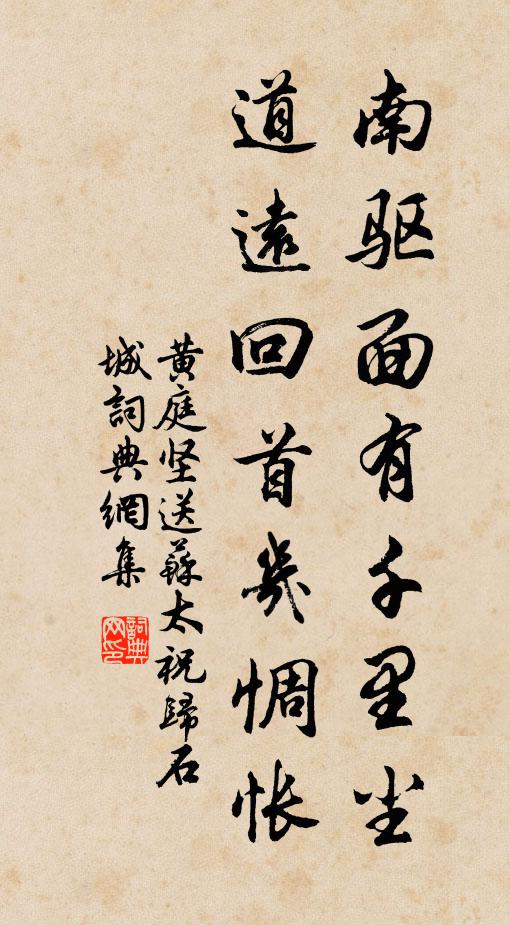 南驱面有千里尘
道遠回首幾惆怅
黄庭坚送蘇太祝歸石
城詞典網集
詞典
网印